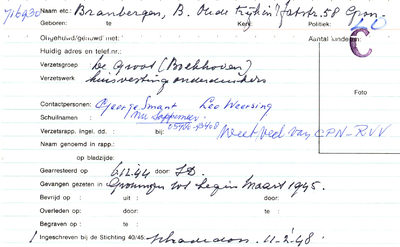 Naam etc.: Branbergen, B. Oude
Geboren: te Kerk: Politiek:
Ongehuwd/gehuwd met: Aantal kinderen:
C
Huidig adres en telef.nr.:
Verzetsgroep: de Groot (Boekhoven)
Verzetswerk huisvesting onderduikers
Foto
Contactpersonen: George Smant Leo Weersing
Schuilnamen :
Verzetsrapp. ingel. dd. : bij: Weet veel van CPN-RVV
Naam genoemd in rapp.:
op bladzijde:
Gearresteerd op 6.12.44 door: S.D.
Gevangen gezeten in Groningen tot begin maart 1945.
Bevrijd op : uit : door:
Overleden op: door: te:
Begraven op : te :
Ingeschreven bij de Stichting 40/45: 11-2-48.